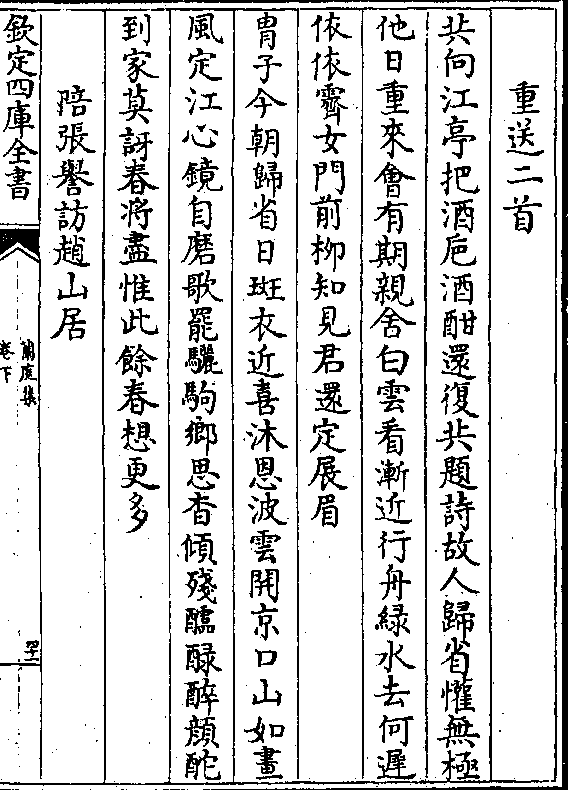 重送二首
共向江亭把酒巵酒酣還復共題詩故人歸省懽無極
他日重來㑹有期親舍白雲看漸近行舟緑水去何遲
依依霽女門前柳知見君還定展眉
胄子今朝歸省日斑衣近喜沐恩波雲開京口山如畫
風定江心鏡自磨歌罷驪駒鄉思杳傾殘醽醁醉顔酡
到家莫訝春将盡惟此餘春想更多
陪張譽訪趙山居
欽定四庫全書
蘭庭集
卷下